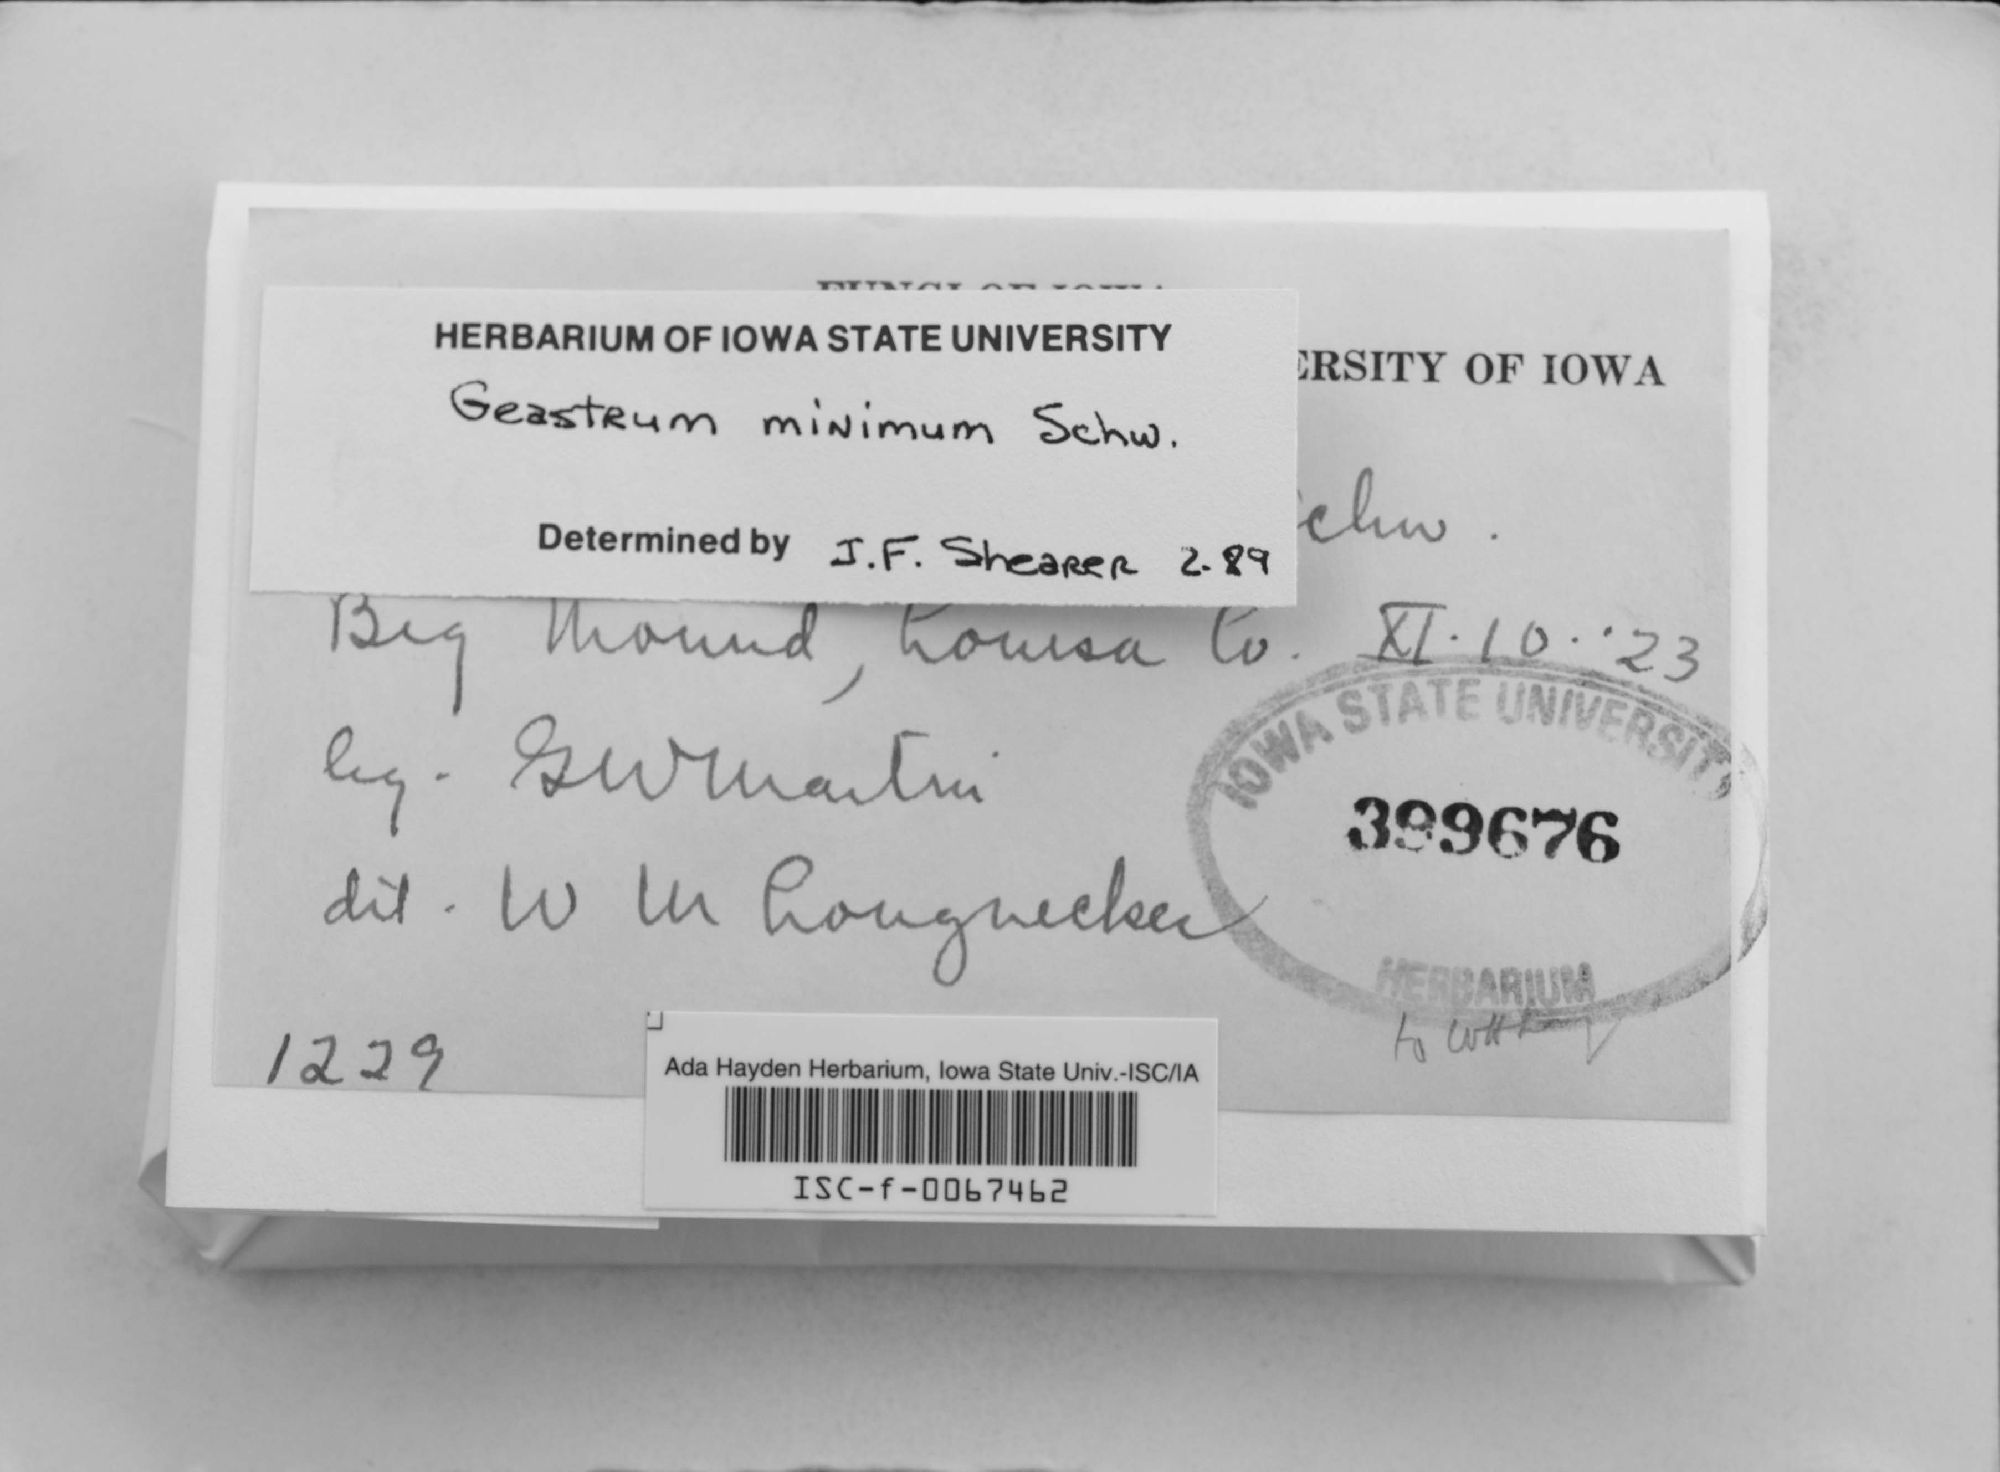 FUNGI OF IOWA
HERBARIUM OF IOWA STATE UNIVERSITY
ERSITY OF IOWA
Geastrum minimum Schw.
chw.
Determined by J.F. Shearer 2-89
Big Mound, Louisa Co. XI·10·'23
leg. GWMartin
det. W M Longnecker
IOWA STATE UNIVERSITY
399676
HERBARIUM
1229
Ada Hayden Herbarium, Iowa State Univ.-ISC/IA
ISC-f-0067462